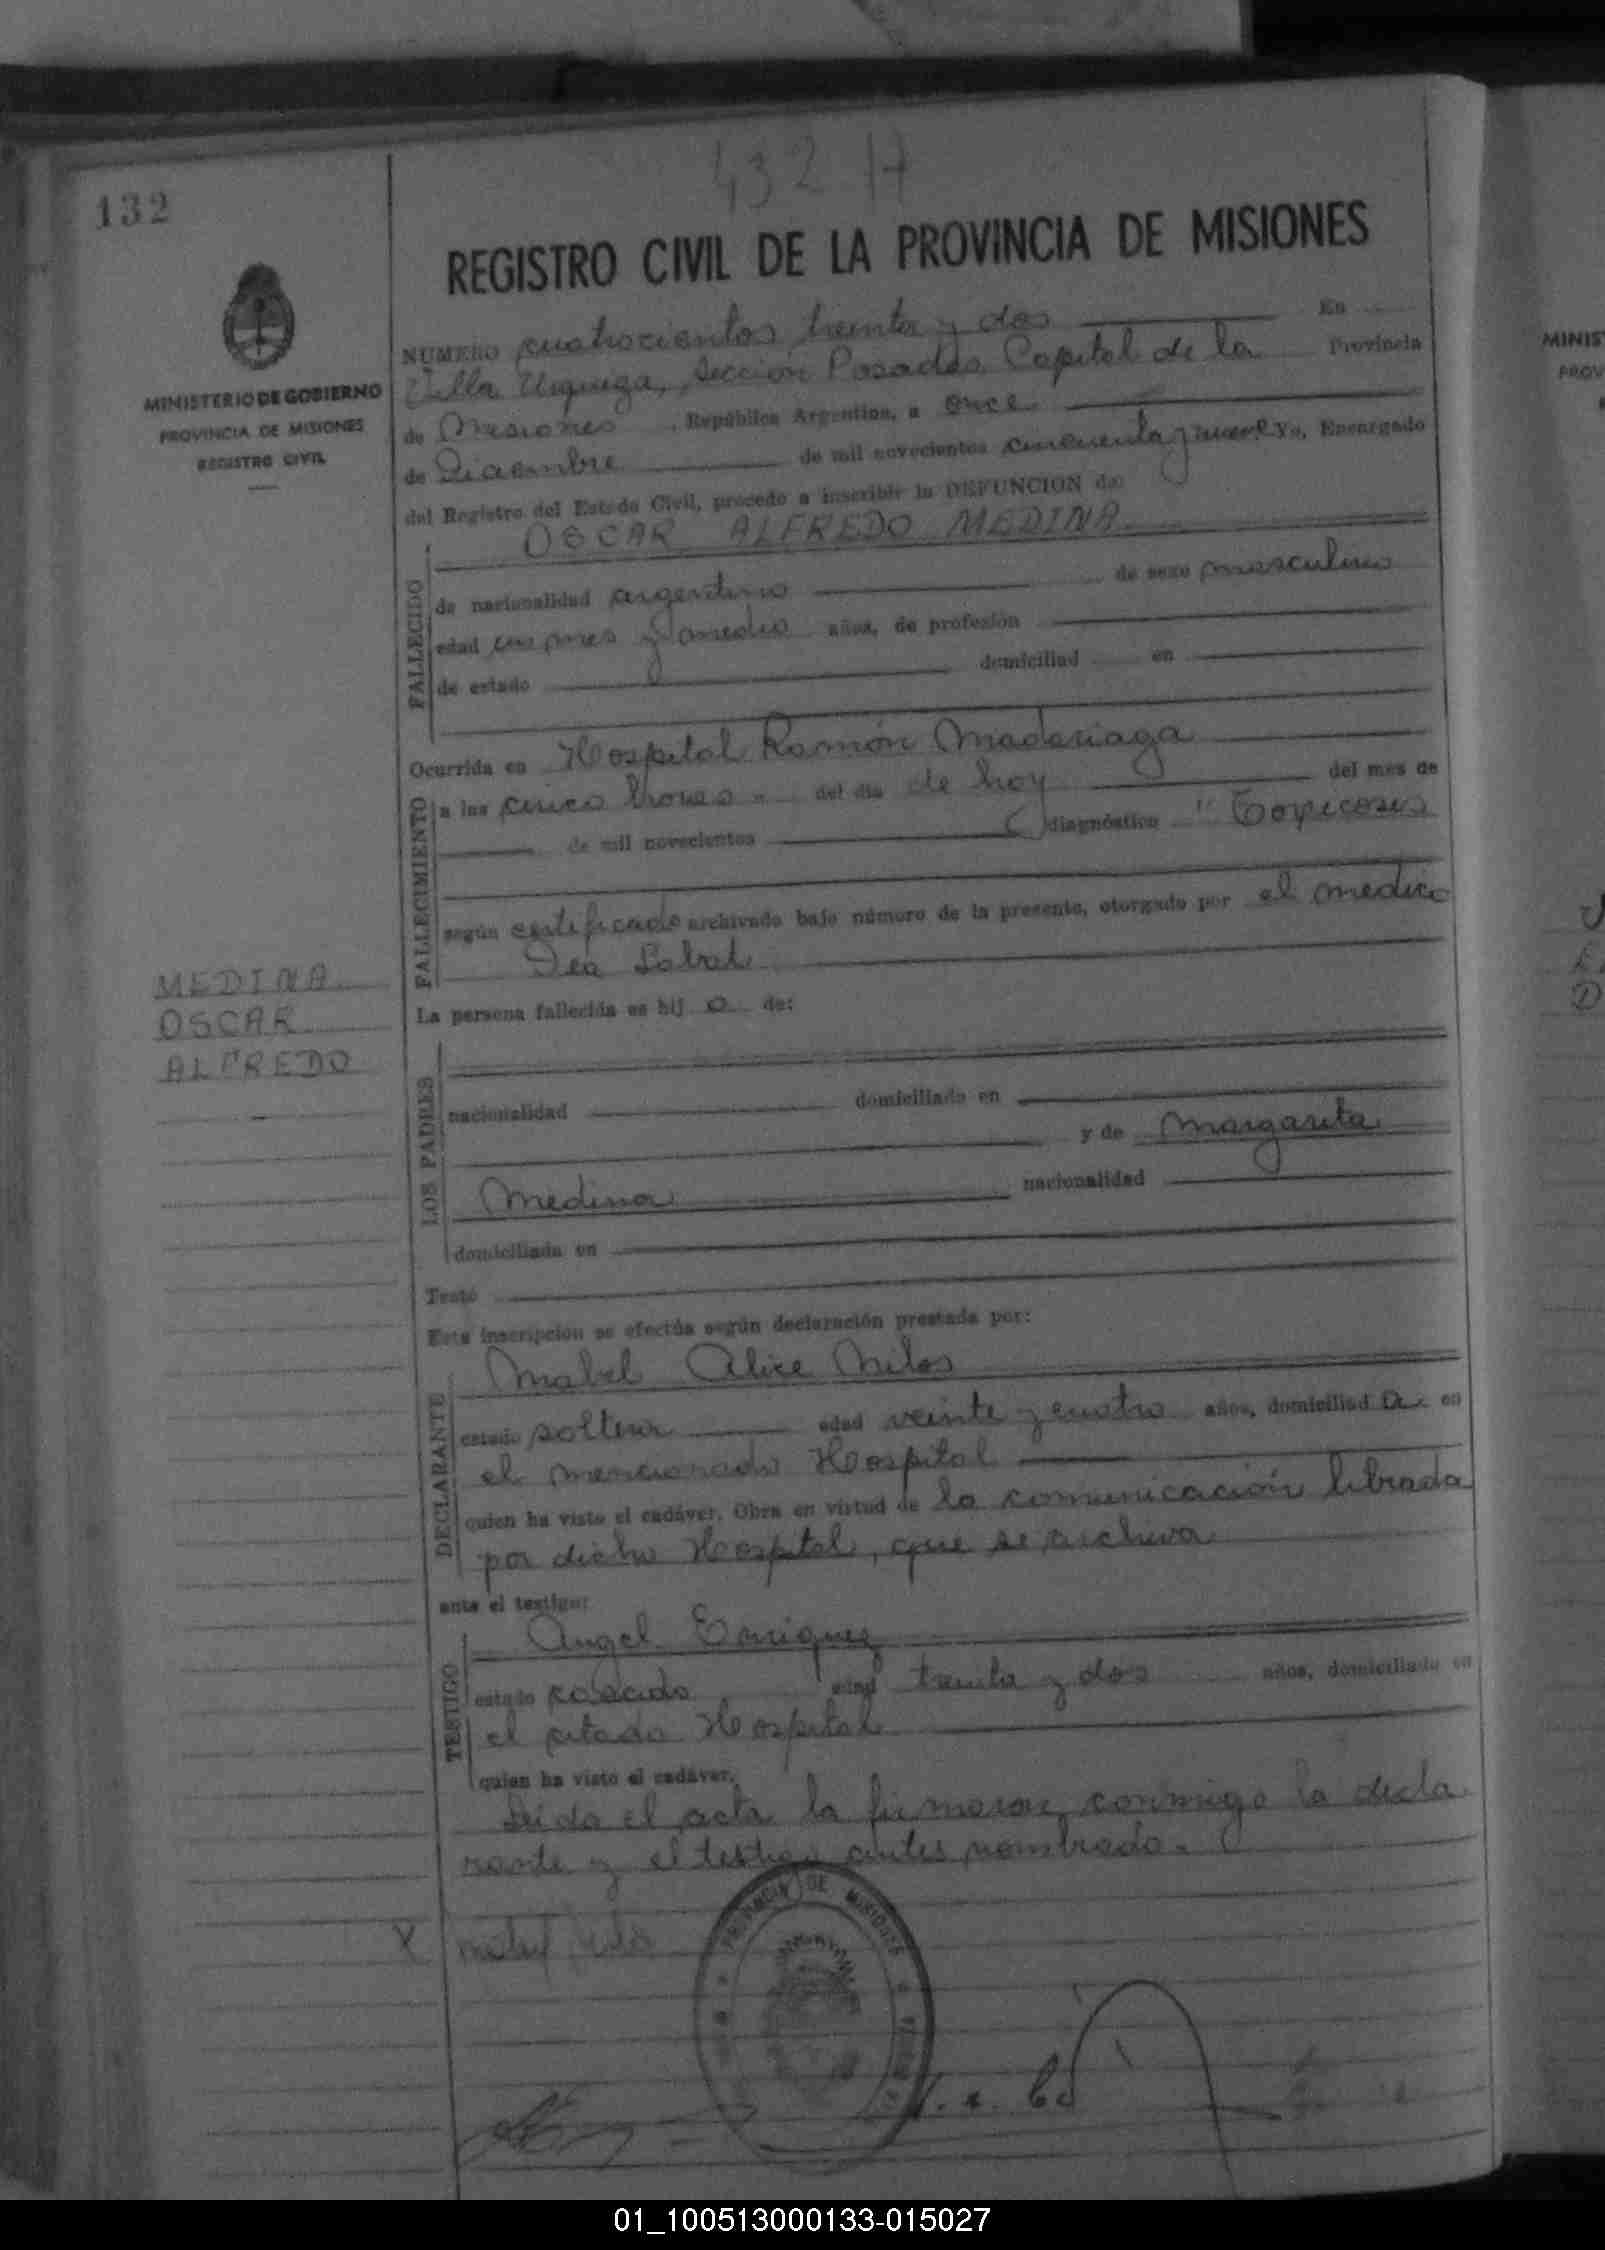 432 H
132
REGISTRO CIVIL DE LA PROVINCIA DE MISIONES
MINISTERIO DE GOBIERNO
PROVINCIA DE MISIONES
REGISTRO CIVIL
NUMERO cuatrocientos treinta y dos En
Villa Urquiza, Sección Posadas Capital de la Provincia
de Misiones, República Argentina, a once
de Diciembre de mil novecientos cincuenta y nueve Yo, Encargado
del Registro del Estado Civil, procedo a inscribir la DEFUNCION de:
OSCAR ALFREDO MEDINA
FALLECIDO
de nacionalidad argentino de sexo masculino
edad un mes y medio años, de profesión
de estado domiciliad en
Ocurrida en Hospital Ramón Madariaga
FALLECIMIENTO
a las cinco horas del día de hoy del mes de
de mil novecientos diagnóstico "Toxicosis
según certificado archivado bajo número de la presente, otorgado por el medico
Sabal
MEDINA
OSCAR
ALFREDO
La persona fallecida es hij o de:
LOS PADRES
nacionalidad domiciliado en
y de Margarita
Medina nacionalidad
domiciliada en
Testó
Esta inscripción se efectúa según declaración prestada por:
DECLARANTE
Mabel Alice
estado soltera edad veinte y cuatro años, domiciliad a en
el mencionado Hospital
quien ha visto el cadáver. Obra en virtud de la comunicación librada
por dicho Hospital, que se archiva
ante el testigo:
TESTIGO
Angel Enriquez
estado casado edad treinta y dos años, domiciliado en
el citado Hospital
quien ha visto el cadáver.
Leida el acta la firmaron conmigo la decla
rante y el testigo antes nombrado.
X
PROVINCIA DE MISIONES
MINIS
PROV
01_100513000133-015027